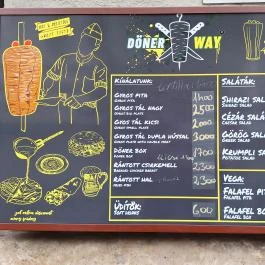 DÖNER WAY
KÍNÁLATUNK:
GYROS PITA 1400
GYROS PITA
GYROS TÁL NAGY 2500
GYROS BIG PLATE
GYROS TÁL KICSI 2000
GYROS SMALL PLATE
GYROS TÁL DUPLA HÚSSAL 3000
GYROS PLATE WITH DOUBLE MEAT
DÖNER BOX 1700
DÖNER BOX
RÁNTOTT CSIRKEMELL 2300
BREADED CHICKEN BREAST
RÁNTOTT HAL 2300
FRIED FISH
ÜDÍTŐK: 600
SOFT DRINKS
SALÁTÁK:
SHIRAZI SALÁ
SHIRAZI SALAD
CÉZÁR SALÁ
CAESAR SALAD
GÖRÖG SALÁ
GREEK SALAD
KRUMPLI SA
POTATOE SALAD
VEGA:
FALAFEL PIT
FALAFEL PITA
FALAFEL BO
FALAFEL BOX